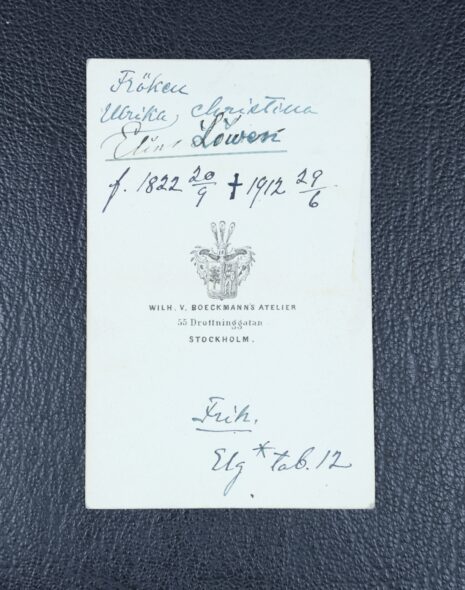 Fröken
Ulrika, Christina
Elin Löwen
f. 1822 20/9 † 1912 29/6
WILH. V. BOECKMANN'S ATELIER
55 Drottninggatan
STOCKHOLM.
Frih.
Elg* tab. 12